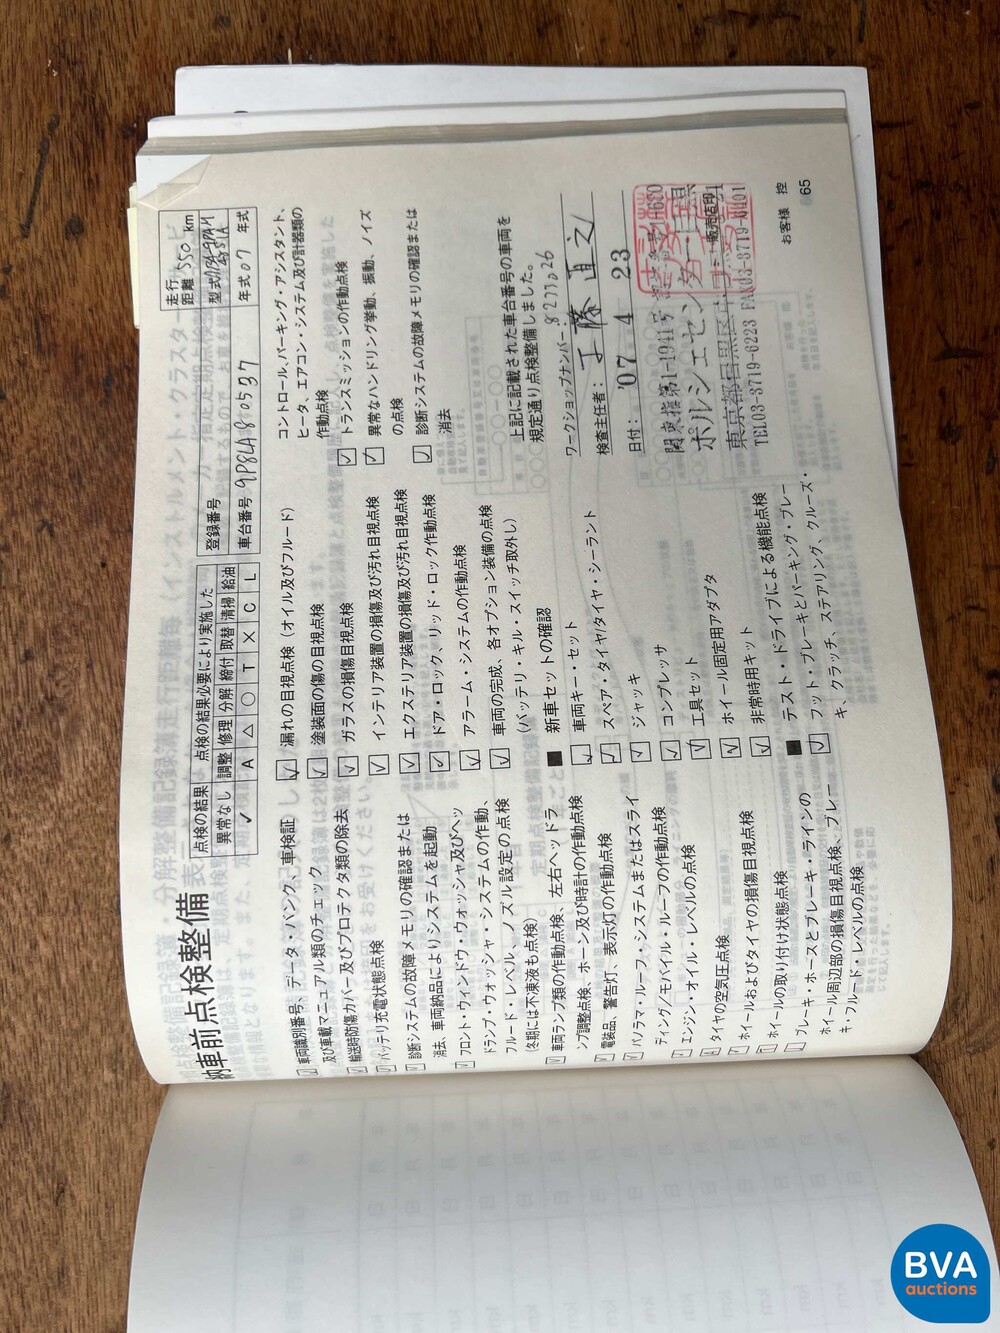 納車前点検整備
点検の結果 点検の結果必要により実施した
異常なし 調整 修理 分解 締付 取替 清掃 給油
✓ A △ ○ T X C L
登録番号
車台番号 9P84480537
走行距離 550 km
型式
年式 07 年式
車両識別番号、データ・バンク、車検証
及び車載マニュアル類のチェック
輸送時防傷カバー及びプロテクタ類の除去
バッテリ充電状態点検
診断システムの故障メモリの確認または
消去、車両納品によりシステムを起動
フロント・ウィンドウ・ウォッシャ及びヘッ
ドランプ・ウォッシャ・システムの作動、
フルード・レベル、ノズル設定の点検
(冬期には不凍液も点検)
車両ランプ類の作動点検、左右ヘッドラ
ンプ調整点検、ホーン及び時計の作動点検
電装品、警告灯、表示灯の作動点検
パノラマ・ルーフ・システムまたはスライ
ディング/モバイル・ルーフの作動点検
エンジン・オイル・レベルの点検
タイヤの空気圧点検
ホイールおよびタイヤの損傷目視点検
ホイールの取り付け状態点検
ブレーキ・ホースとブレーキ・ラインの
ホイール周辺部の損傷目視点検、ブレー
キ・フルード・レベルの点検
漏れの目視点検(オイル及びフルード)
塗装面の傷の目視点検
ガラスの損傷目視点検
インテリア装置の損傷及び汚れ目視点検
エクステリア装置の損傷及び汚れ目視点検
ドア・ロック、リッド・ロック作動点検
アラーム・システムの作動点検
車両の完成、各オプション装備の点検
(バッテリ・キル・スイッチ取外し)
■ 新車セットの確認
車両キー・セット
スペア・タイヤ/タイヤ・シーラント
ジャッキ
コンプレッサ
工具セット
ホイール固定用アダプタ
非常時用キット
■ テスト・ドライブによる機能点検
フット・ブレーキとパーキング・ブレー
キ、クラッチ、ステアリング、クルーズ・
コントロール、パーキング・アシスタント、
ヒータ、エアコン・システム及び計器類の
作動点検
トランスミッションの作動点検
異常なハンドリング挙動、振動、ノイズ
の点検
診断システムの故障メモリの確認または
消去
上記に記載された車台番号の車両を
規定通り点検整備しました。
ワークショップナンバー: 8273026
検査主任者: 工藤直之
日付: '07 4 23
関東指第1-1941号
ポルシェセンター目黒
東京都目黒区
TEL03-3719-6223 FAX03-3719-8401
販売店印
お客様 控
65
BVA
auctions